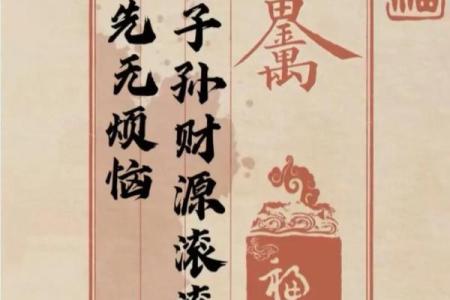 福
子孙财源滚滚
先无烦恼
福